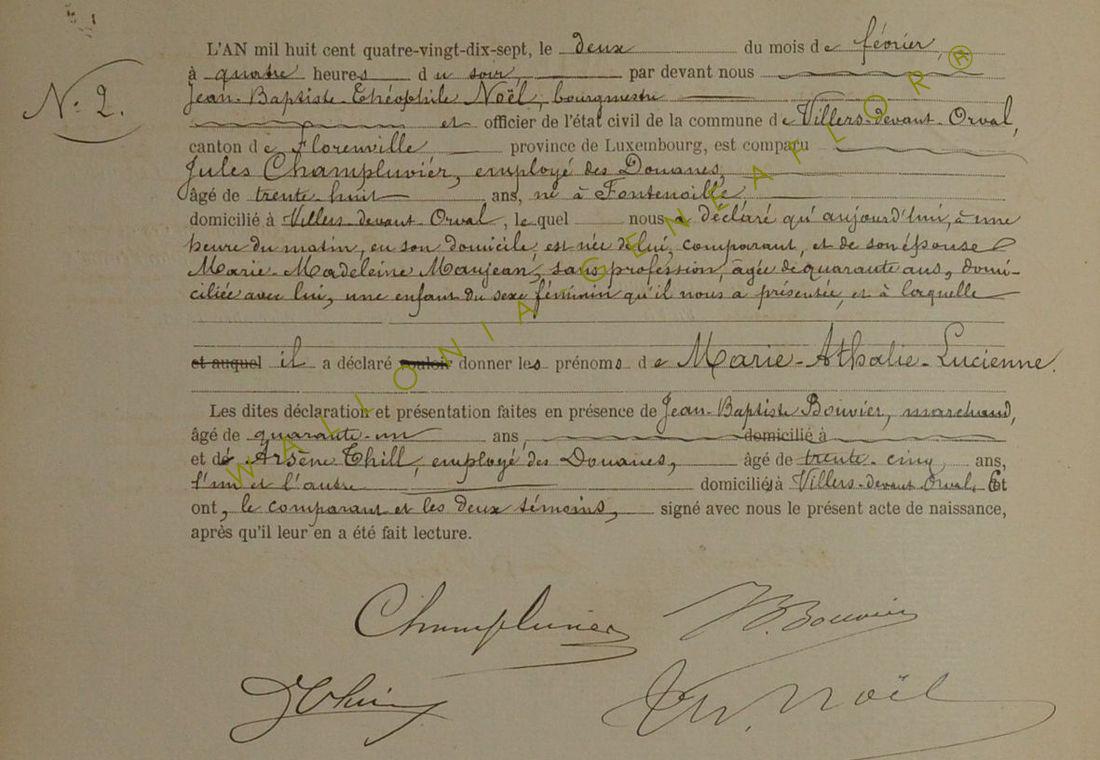 L'AN mil huit cent quatre-vingt-dix-sept, le deux du mois de février,
N° 2.
à quatre heures du soir, par devant nous
Jean-Baptiste-Théophile Noël, bourgmestre
et officier de l'état civil de la commune de Villers-devant-Orval,
canton de Florenville province de Luxembourg, est comparu
Jules Champluvier, employé des Douanes,
âgé de trente huit ans, né à Fontenoille
domicilié à Villers-devant-Orval, lequel nous a déclaré qu'aujourd'hui, à une
heure du matin, en son domicile, est née de lui, comparant, et de son épouse
Marie-Madeleine Maujean, sans profession, âgée de quarante ans, domi-
ciliée avec lui, une enfant du sexe féminin qu'il nous a présentée, et à laquelle
et auquel il a déclaré vouloir donner les prénoms de Marie-Athalie-Lucienne.
Les dites déclaration et présentation faites en présence de Jean-Baptiste Bouvier, marchand,
âgé de quarante-un ans, domicilié à
et de Arsène Thill, employé des Douanes, âgé de trente-cinq ans,
l'un et l'autre domiciliés à Villers-devant-Orval, Et
ont, le comparant et les deux témoins, signé avec nous le présent acte de naissance,
après qu'il leur en a été fait lecture.
Champluvier Bouvier
Thill Th. Noël
WALLONIA-GENEAFLOR®